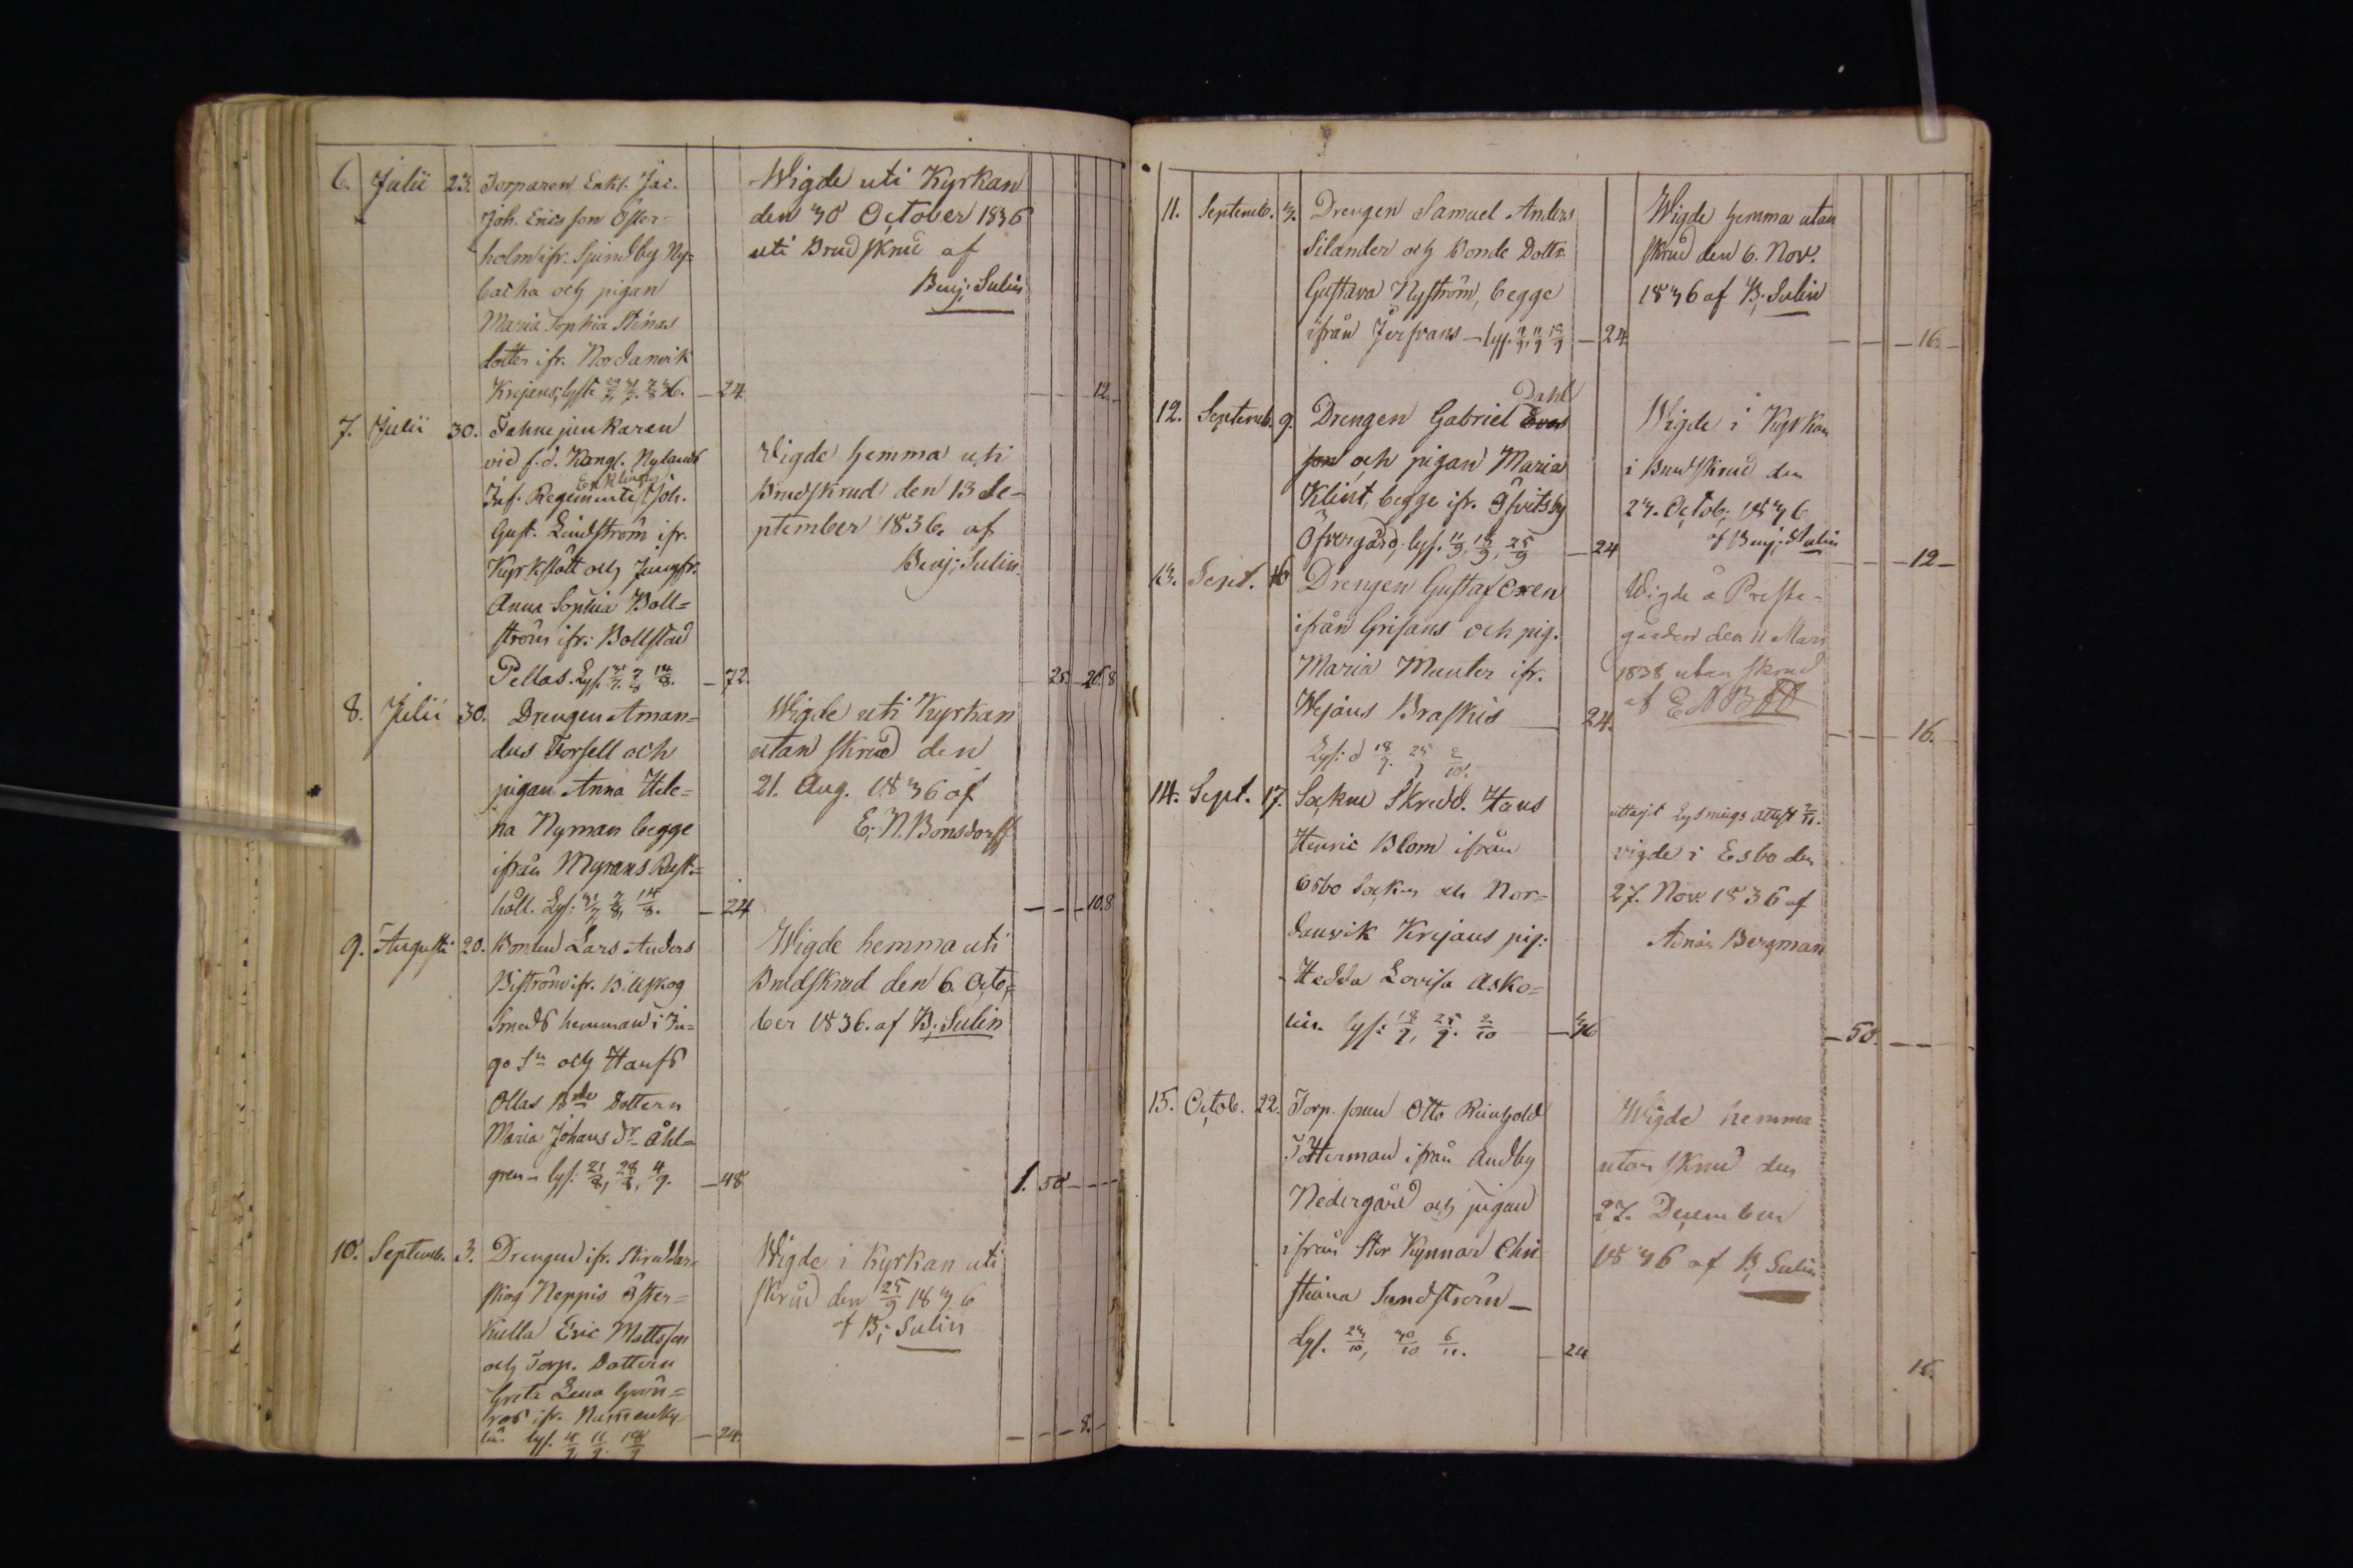 6. Julii 23. Torparen Enkl. Jac.
Joh. Ericsson Öster=
holm ifr. Sjundby Ny=
backa och pigan
Maria Sophia Stinas
dotter ifr. Nordanvik
Krejans, lyste 24/7 31/7 7/8 36. — 24
Wigde uti Kyrkan
den 30 October 1836
uti Brudskrud af
Benj: Sulin
12
7. Julii 30. Fahnejunkaren
vid f.d. Kongl. Nylands
Enklingen
Inf. Regemente Joh.
Gust. Lindström ifr.
Kyrkslätt och Jungfr.
Anna Sophia Boll=
ström ifr. Bollstad
Pellas. Lys. 31/7 7/8 14/8. — 72.
Vigde hemma uti
Brudskrud den 13 Se=
ptember 1836. af
Benj: Sulin.
25. 20. 8
8. Julii 30. Drengen Aman=
dus Forsell och
pigan Anna Hele=
na Nyman begge
ifrån Myrans Rust=
håll. Lys: 31/7 7/8 14/8. — 24
Wigde uti Kyrkan
utan skrud den
21. Aug. 1836 af
E: N. Bonsdorff
— — 10.8
9. Augusti 20. Bonden Lars Anders
Biström ifr. Billskog
Smeds hemman i In=
go Sn och Hansb
Ollas Bde Dottern
Maria Johans dr Åhl=
gren — lys: 21/8, 28/8, 4/9. — 48
Wigde hemma uti
Brudskrud den 6. Octo=
ber 1836. af B; Sulin
1. 50 — — —
10. Septemb. 3. Drengen ifr. Skräddar=
skog Neppis Öster=
kulla Eric Mattsson
och Torp. Dottern
Greta Lena Grön=
roos ifr. Nummenky=
lä. lys. 4/9 11/9 18/9 — 24.
Wigde i Kyrkan uti
skrud den 25/9 1836
af B; Sulin
— — — 8. —
11. Septemb. 3. Drengen Samuel Anders
Silander och Bonde Dottr.
Gustava Nyström, begge
ifrån Jerfvans — lys. 4/9, 11/9 18/9 — 24
Wigde hemma utan
skrud den 6. Nov.
1836 af B; Sulin
— — — 16 —
Dahl
12. Septemb. 9. Drengen Gabriel Evas
son och pigan Maria
Klint, begge ifr. Öfvitsby
Öfvergård, lys. 11/9, 18/9, 25/9 — 24
Wigde i Kyrkan
i Brudskrud den
23. Octob; 1836
af Benj: Sulin
— — — 12 —
13. Sept. 16 Drengen Gustaf Oxen
ifrån Grisans och pig.
Maria Munter ifr.
Wejans Braskis — 24.
Lys: d 18/9. 25/9 2/10.
Wigde å Preste=
gården den 11 Mars
1838 utan skrud
af
— — — 16.
14. Sept. 17. Sockne Skredd. Hans
Henric Blom ifrån
Esbo Socken och Nor=
danvik Krejans pig:
Hedda Lovisa Asko=
lin. lys: 18/9, 25/9. 2/10 — 36
uttagit Lysnings attest 2/11.
vigde i Esbo den
27. Nov. 1836 af
Adnär Bergman
— 50. — —
15. Octob. 22. Torp. sonen Otto Reinhold
Totterman ifrån Andby
Nedergård och pigan
ifrån Stor Kynnar Chri=
stiana Sundström —
Lys. 23/10, 30/10 6/11. — 24
Wigde hemma
utan skrud den
27. December
1836 af B; Sulin
16.